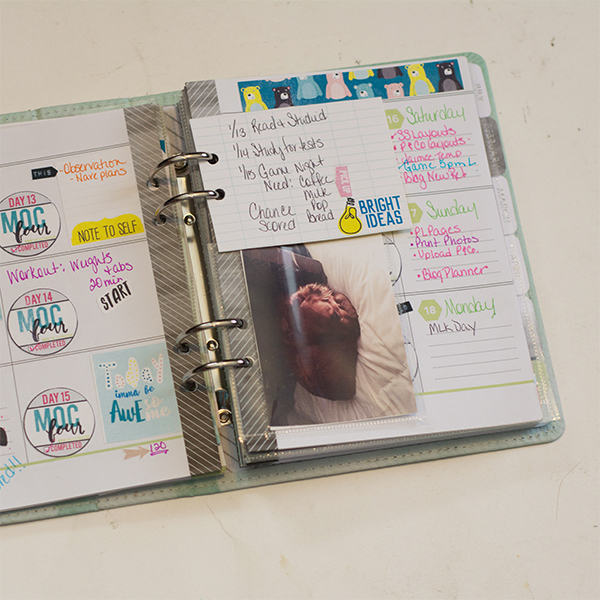 THIS - Observation
- Nave plans
DAY 13
MOC
four
COMPLETED
NOTE TO SELF
Workout: Wughts
+ abs
20 min
START
DAY 14
MOC
four
COMPLETED
DAY 15
MOC
four
COMPLETED
TODAY
imma be
AWESome
120
1/13 Read & Studied
1/14 Study for tests
1/15 Game Night
Need: Coffee
Milk
Pop
Bread
Chance
Scored
PICK UP
BRIGHT
IDEAS
16 Saturday
• SS Layouts
• P&Co layouts
Game 8pm L
Blog New Rel
7 Sunday
• PL Pages
• Print Photos
• Upload P&Co.
• Blog Planner
18 Monday
MLK Day